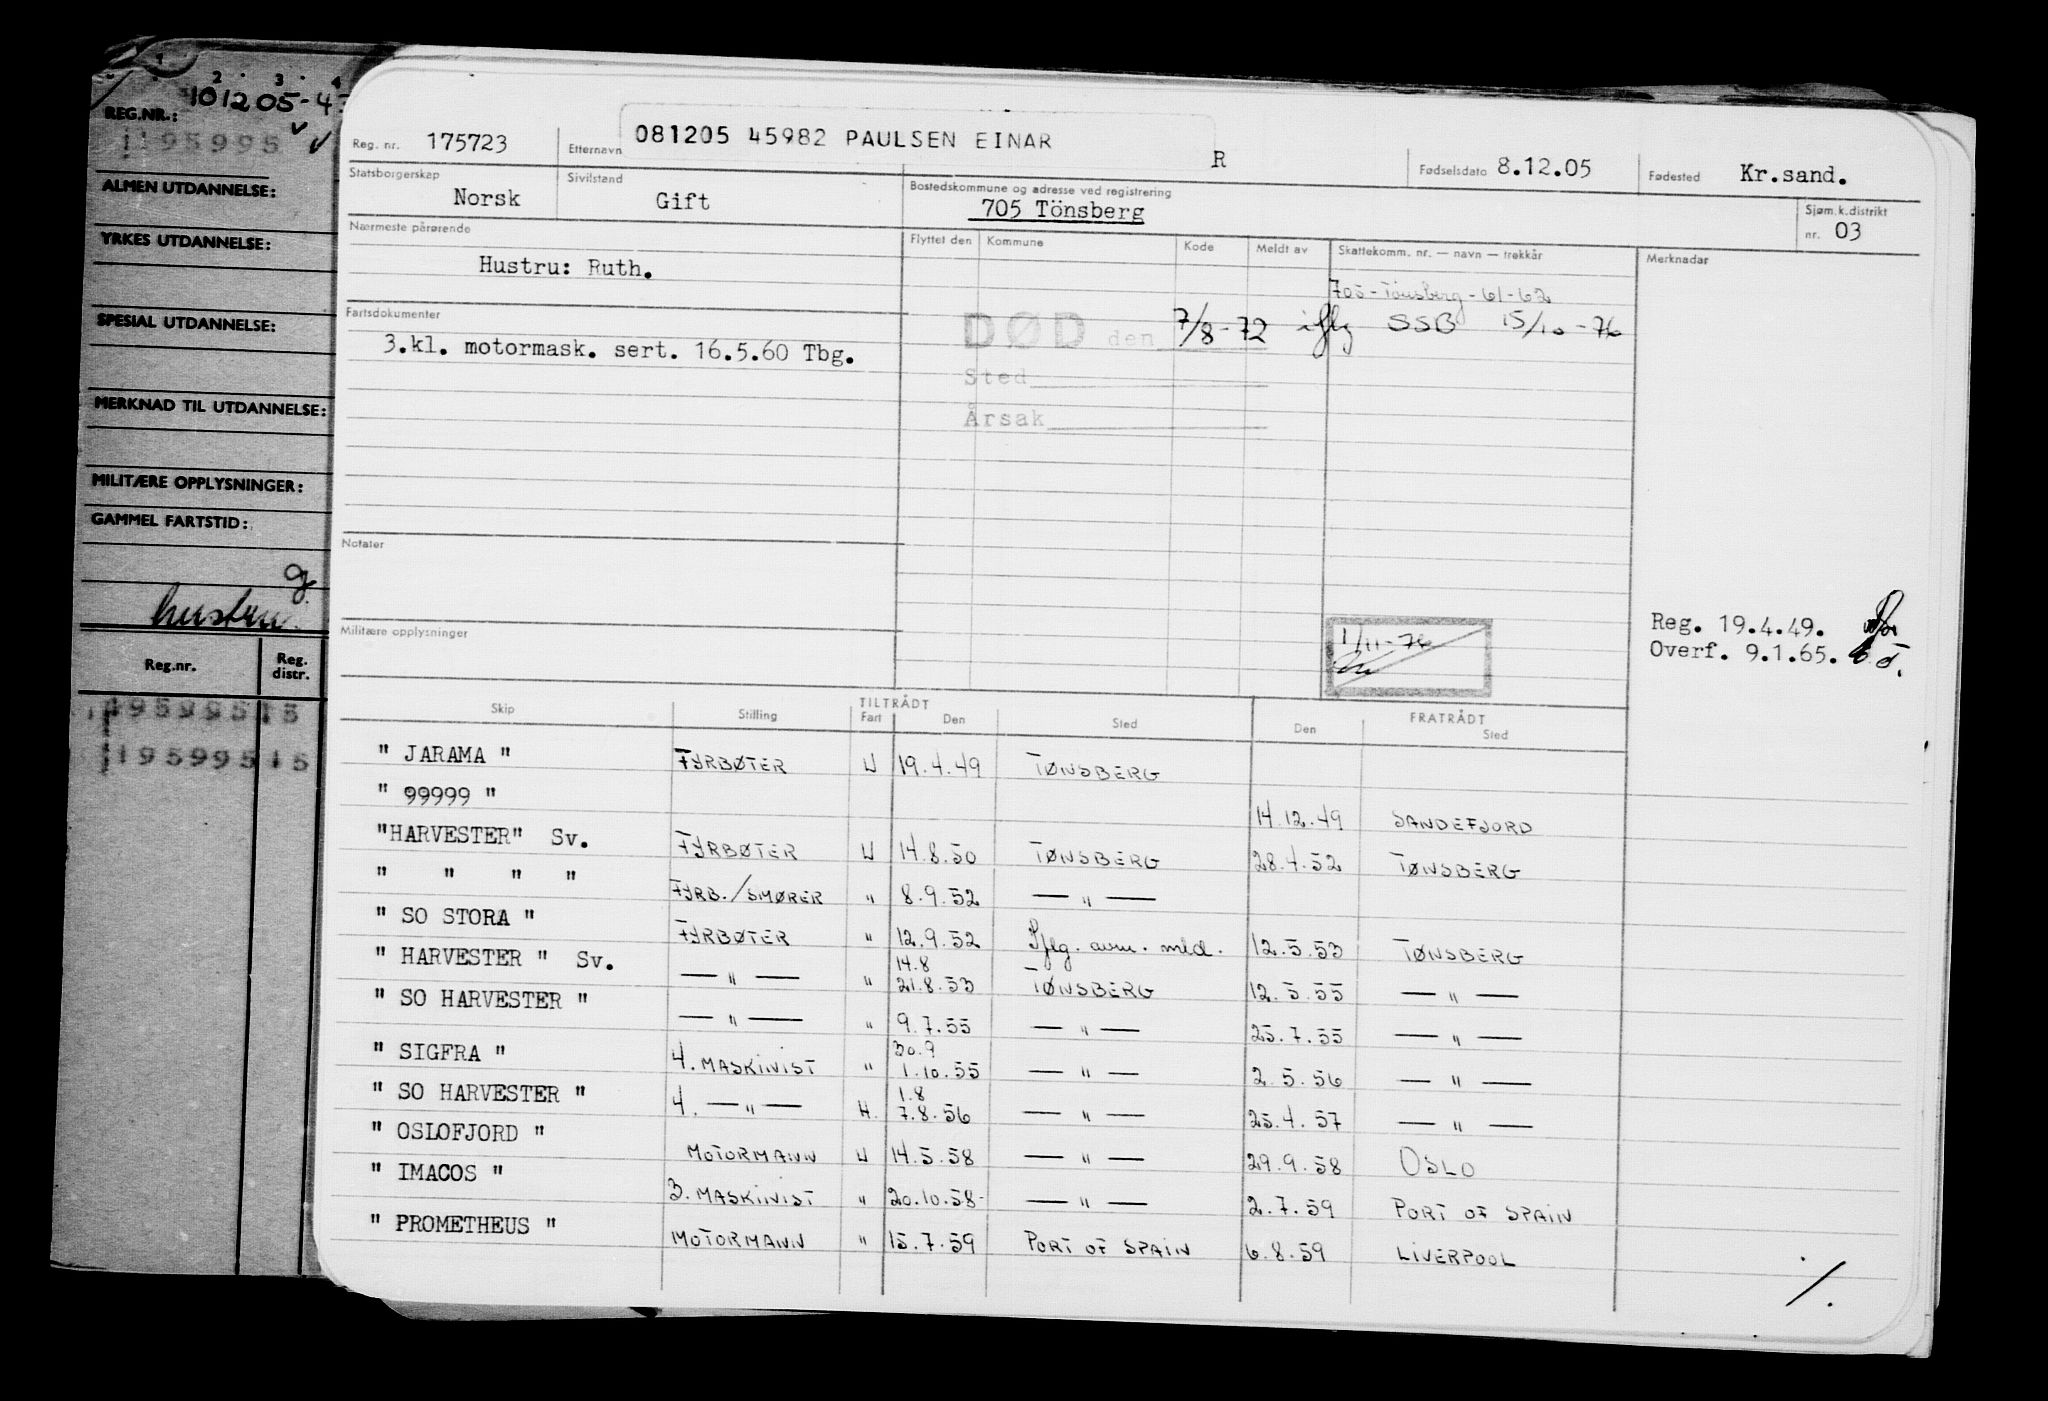 1 2 3 4
REG.NR.: 101205-4
195995
ALMEN UTDANNELSE:
YRKES UTDANNELSE:
SPESIAL UTDANNELSE:
MERKNAD TIL UTDANNELSE:
MILITÆRE OPPLYSNINGER:
GAMMEL FARTSTID:
hustru
Reg.nr. Reg. distr.
195995 15
195995 15
Reg. nr. 175723 Etternavn 081205 45982 PAULSEN EINAR R Fødselsdato 8.12.05 Fødested Kr.sand.
Statsborgerskap Norsk Sivilstand Gift Bostedskommune og adresse ved registrering 705 Tönsberg Sjøm.k.distrikt nr. 03
Nærmeste pårørende Flyttet den Kommune Kode Meldt av Skattekomm. nr. — navn — trekkår Merknader
Hustru: Ruth.
705 - Tönsberg - 61-62
Fartsdokumenter DØD den 7/8-72 iflg SSB 15/10-76
3.kl. motormask. sert. 16.5.60 Tbg.
Sted
Årsak
Notater
Militære opplysninger
1/11-76
Reg. 19.4.49.
Overf. 9.1.65.
Skip Stilling TILTRÅDT Fart Den Sted FRATRÅDT Den Sted
" JARAMA " FYRBØTER U 19.4.49 TØNSBERG
" 99999 " 14.12.49 SANDEFJORD
"HARVESTER" Sv. FYRBØTER U 14.8.50 TØNSBERG 28.4.52 TØNSBERG
" " " " FYRB./SMØRER " 8.9.52 — " —
" SO STORA " FYRBØTER " 12.9.52 Iflg. avm. mld. 12.5.53 TØNSBERG
" HARVESTER " Sv. — " — " 14.8 21.8.53 TØNSBERG 12.5.55 — " —
" SO HARVESTER " — " — " 9.7.55 — " — 25.7.55 — " —
" SIGFRA " 4. MASKINIST " 30.9 1.10.55 — " — 2.5.56 — " —
" SO HARVESTER " 4. — " — H. 1.8 7.8.56 — " — 25.4.57 — " —
" OSLOFJORD " MOTORMANN U 14.5.58 — " — 29.9.58 OSLO
" IMACOS " 3. MASKINIST " 20.10.58- — " — 2.7.59 PORT OF SPAIN
" PROMETHEUS " MOTORMANN " 15.7.59 PORT OF SPAIN 6.8.59 LIVERPOOL